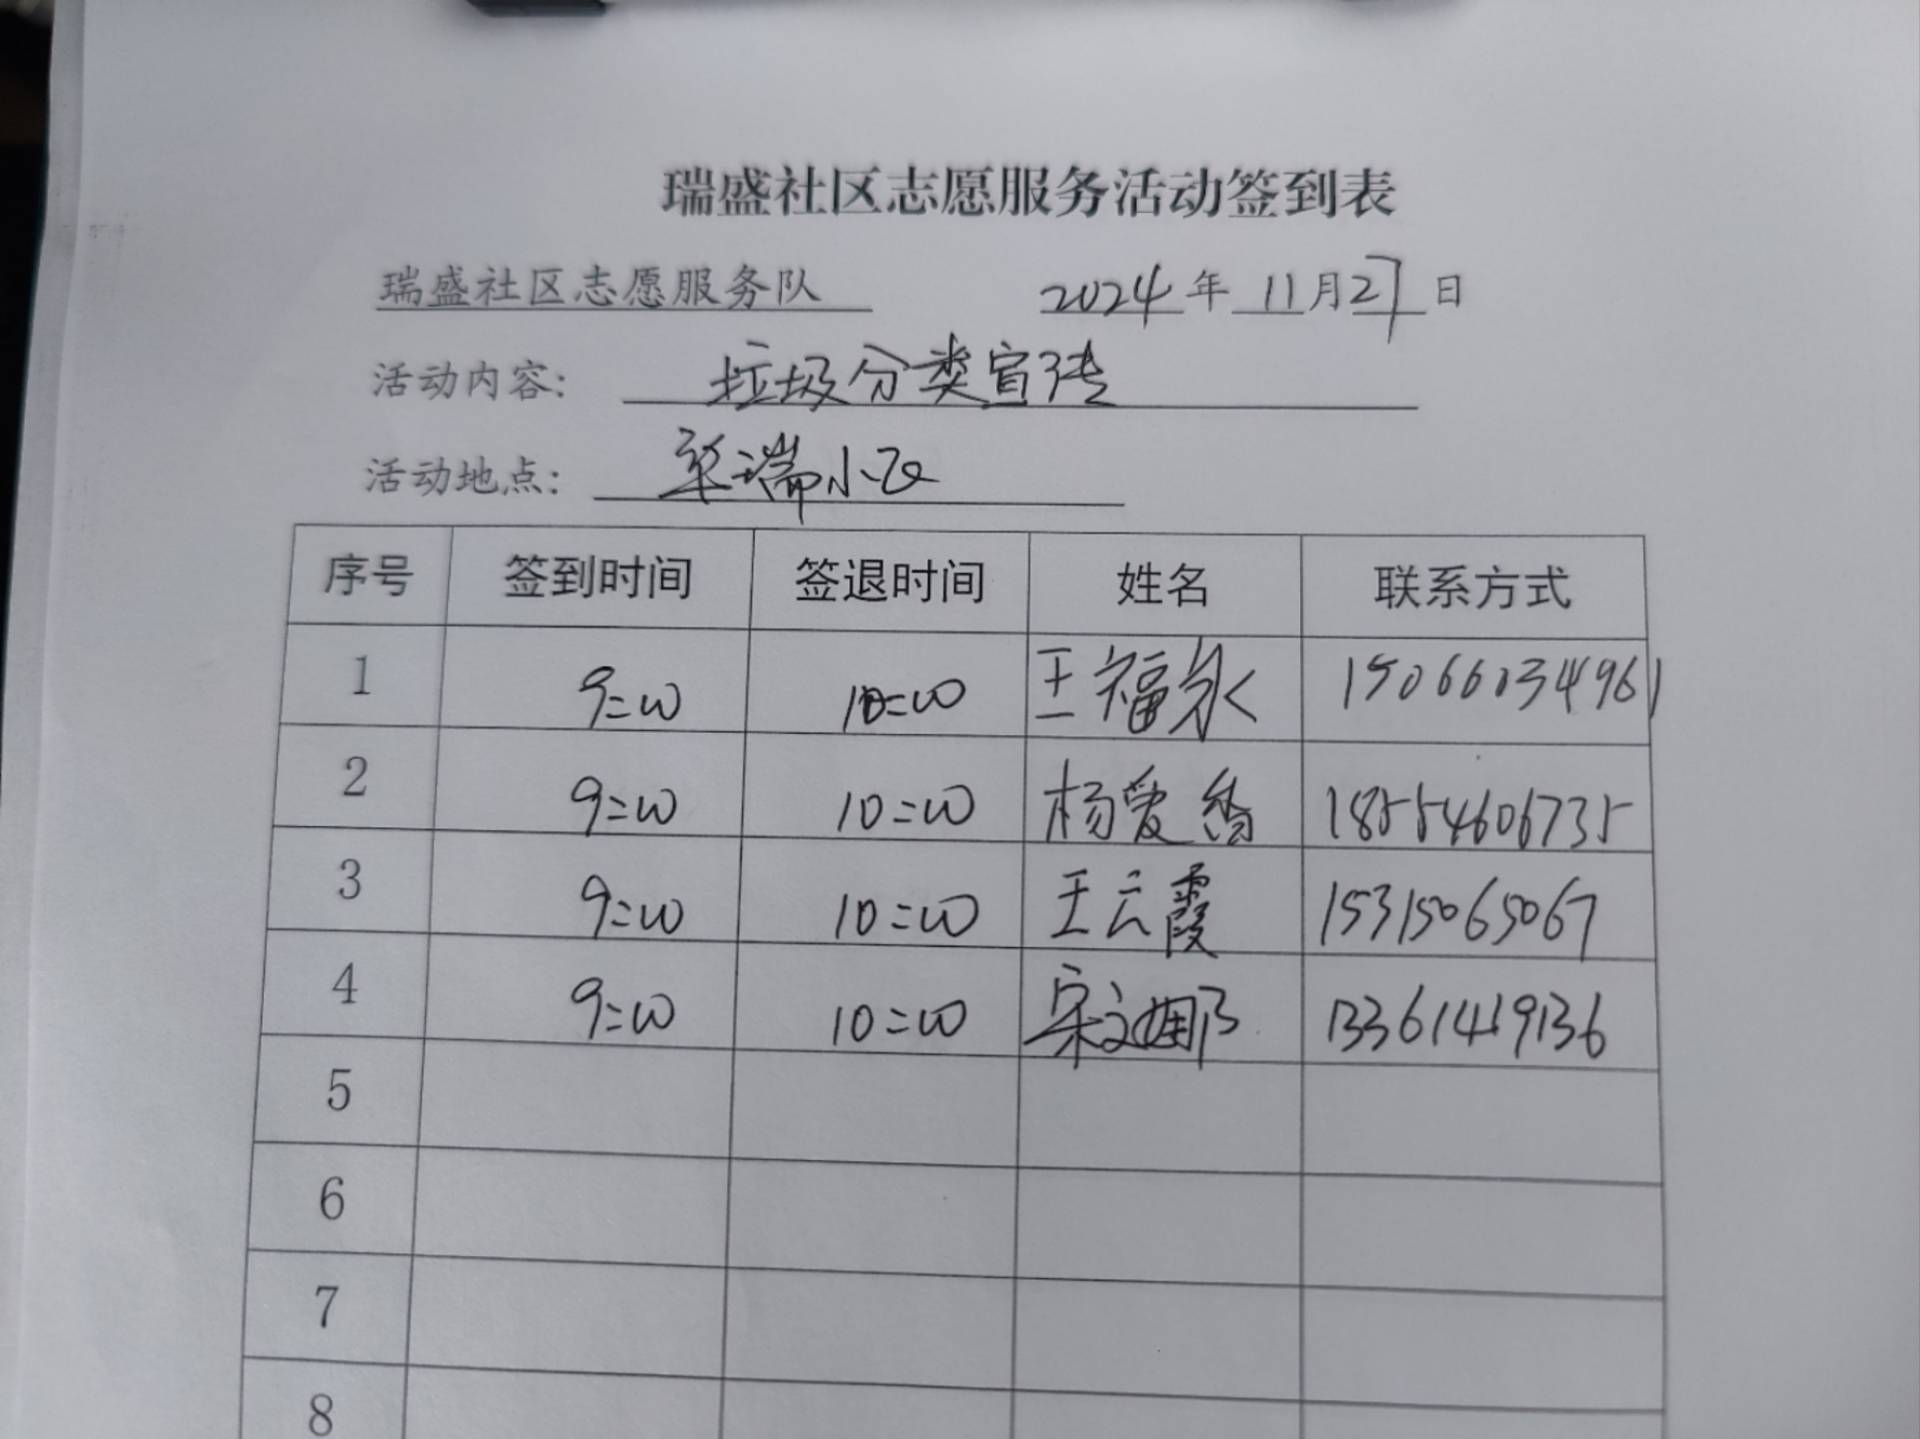 瑞盛社区志愿服务活动签到表
瑞盛社区志愿服务队 2024年11月27日
活动内容: 垃圾分类宣传
活动地点: 瑞小区
序号 签到时间 签退时间 姓名 联系方式
1 9:00 10:00 王福永 15066034961
2 9:00 10:00 杨爱香 18554606735
3 9:00 10:00 王云霞 15315065067
4 9:00 10:00 宋文娜 13361419136
5
6
7
8